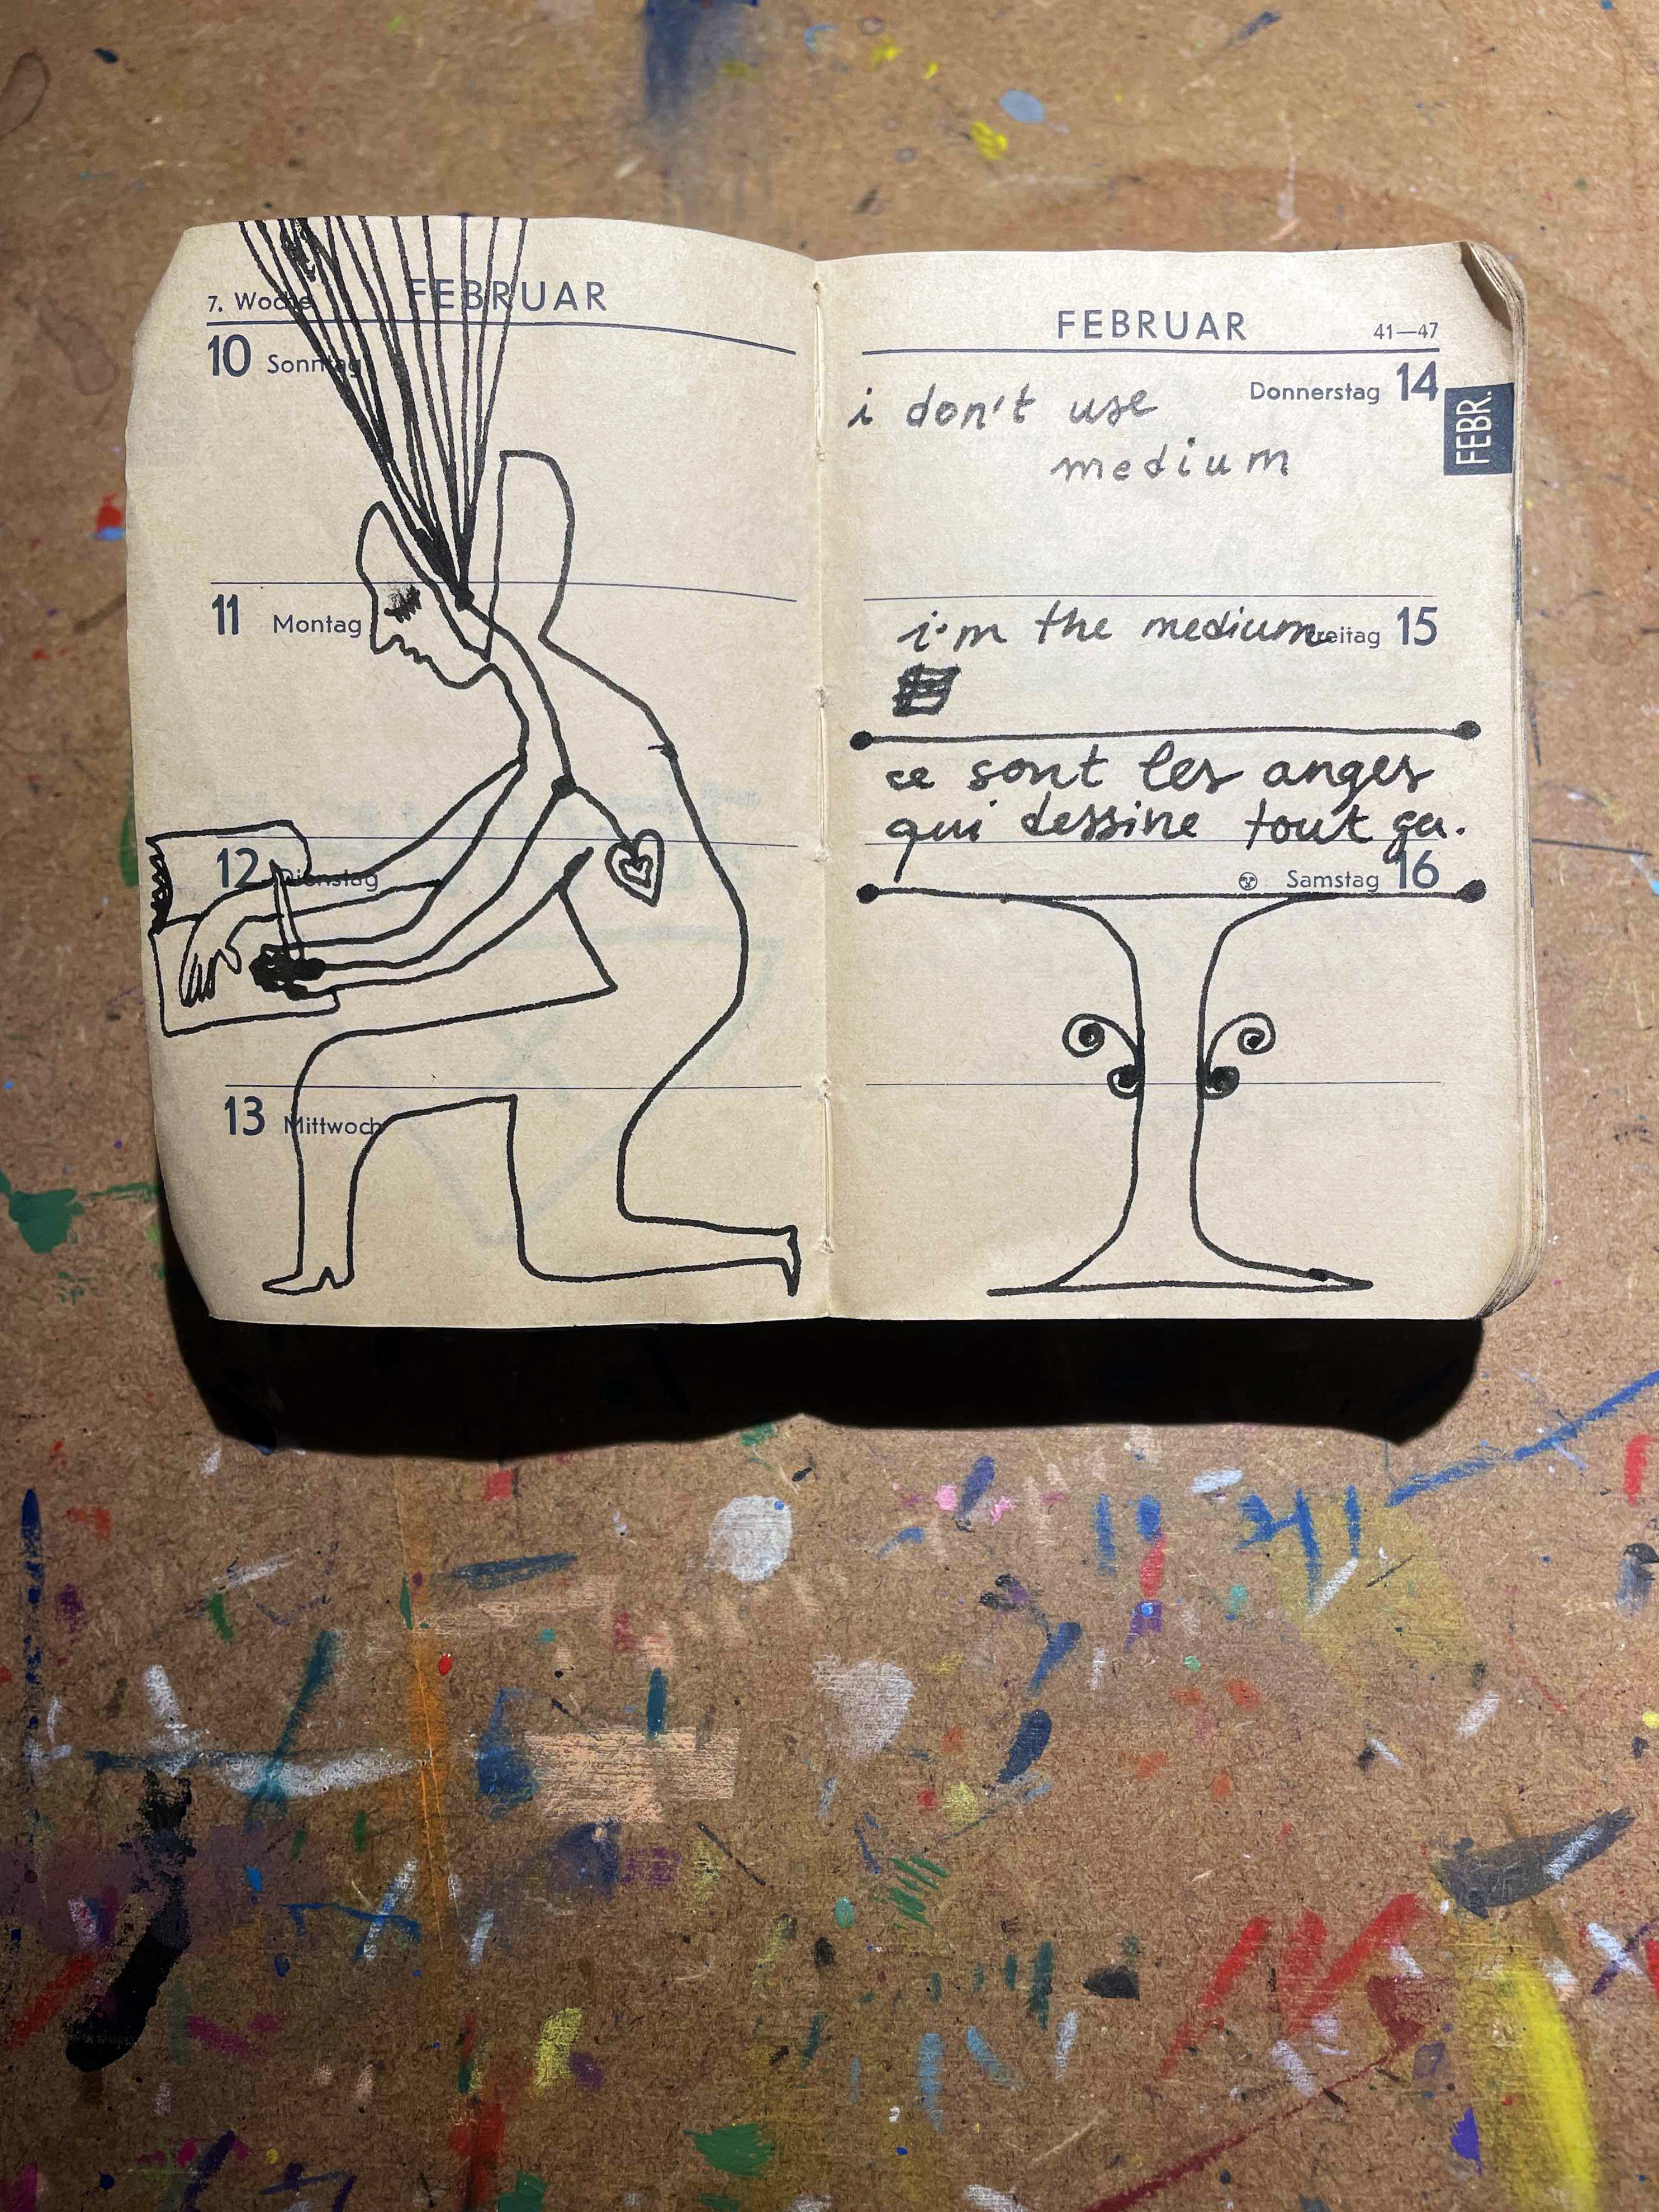 7. Woche FEBRUAR
10 Sonntag
11 Montag
12 Dienstag
13 Mittwoch
FEBRUAR 41—47
Donnerstag 14
FEBR.
i don't use
medium
i'm the medium
Freitag 15
ce sont les anges
qui dessine tout ça.
Samstag 16